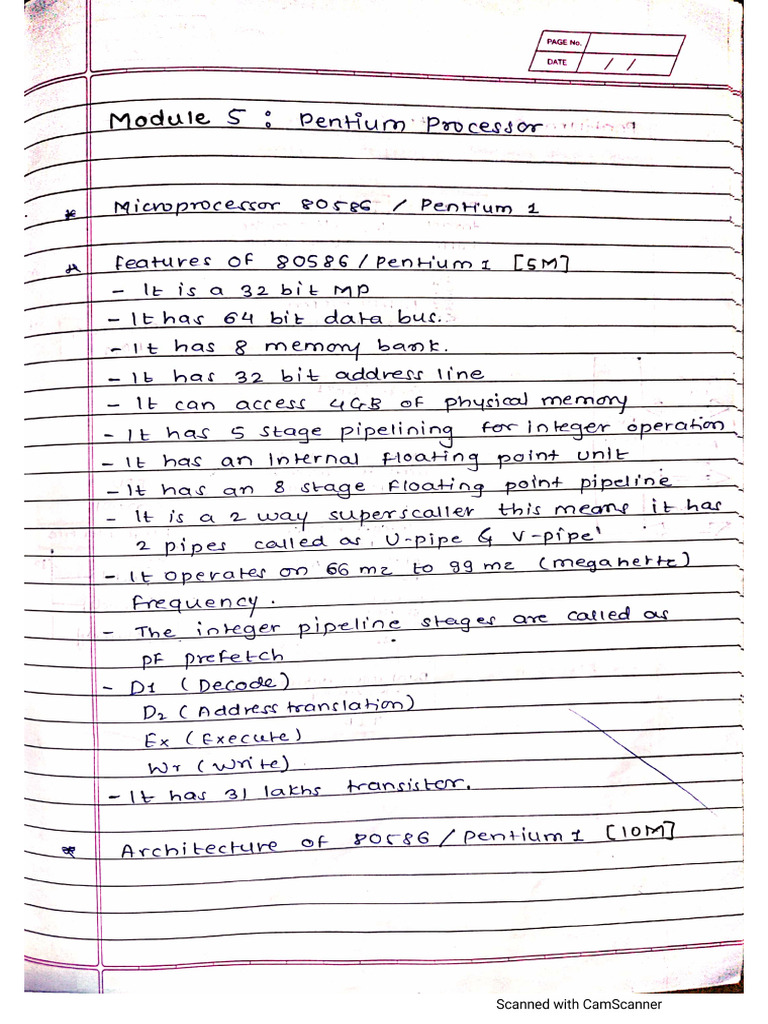 PAGE No.
DATE / /
Module 5 : Pentium Processor
* Microprocessor 80586 / Pentium 1
* Features of 80586/Pentium 1 [5M]
- It is a 32 bit MP
- It has 64 bit data bus.
- It has 8 memory bank.
- It has 32 bit address line
- It can access 4GB of physical memory
- It has 5 stage pipelining for integer operation
- It has an internal floating point unit
- it has an 8 stage floating point pipeline
- It is a 2 way superscaller this means it has
2 pipes called as 'U-pipe & V-pipe'
- It operates on 66 mz to 99 mz (megahertz)
frequency.
- The integer pipeline stages are called as
PF prefetch
- D1 (Decode)
D2 (Address translation)
Ex (Execute)
Wr (Write)
- It has 31 lakhs transistor.
* Architecture of 80586/Pentium 1 [10M]
Scanned with CamScanner